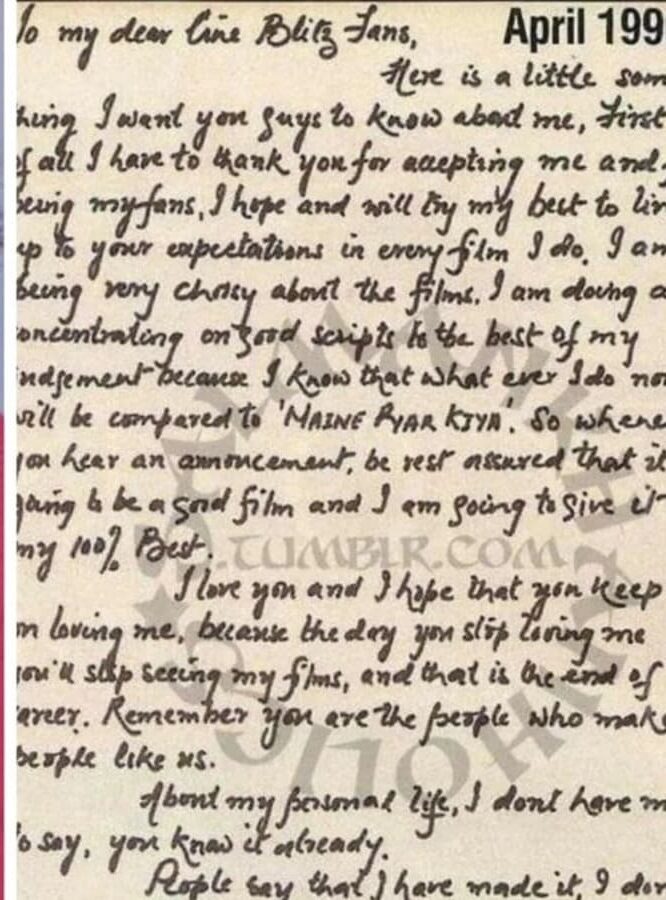 To my dear Cine Blitz Fans, April 199
Here is a little som
hing I want you guys to know about me, First
of all I have to thank you for accepting me and
being my fans, I hope and will try my best to liv
up to your expectations in every film I do. I am
being very choisy about the films. I am doing a
oncentrating on good scripts to the best of my
udgement because I know that what ever I do no
will be compared to 'MAINE PYAR KIYA'. So whene
you hear an annoucement, be rest assured that it
going to be a good film and I am going to give it
my 100% Best.
.TUMBLR.COM
I love you and I hope that you keep
on loving me, because the day you stop loving me
you'll stop seeing my films, and that is the end of
areer. Remember you are the people who make
people like us.
About my personal life, I dont have m
to say, you know it already.
People say that I have made it, I don